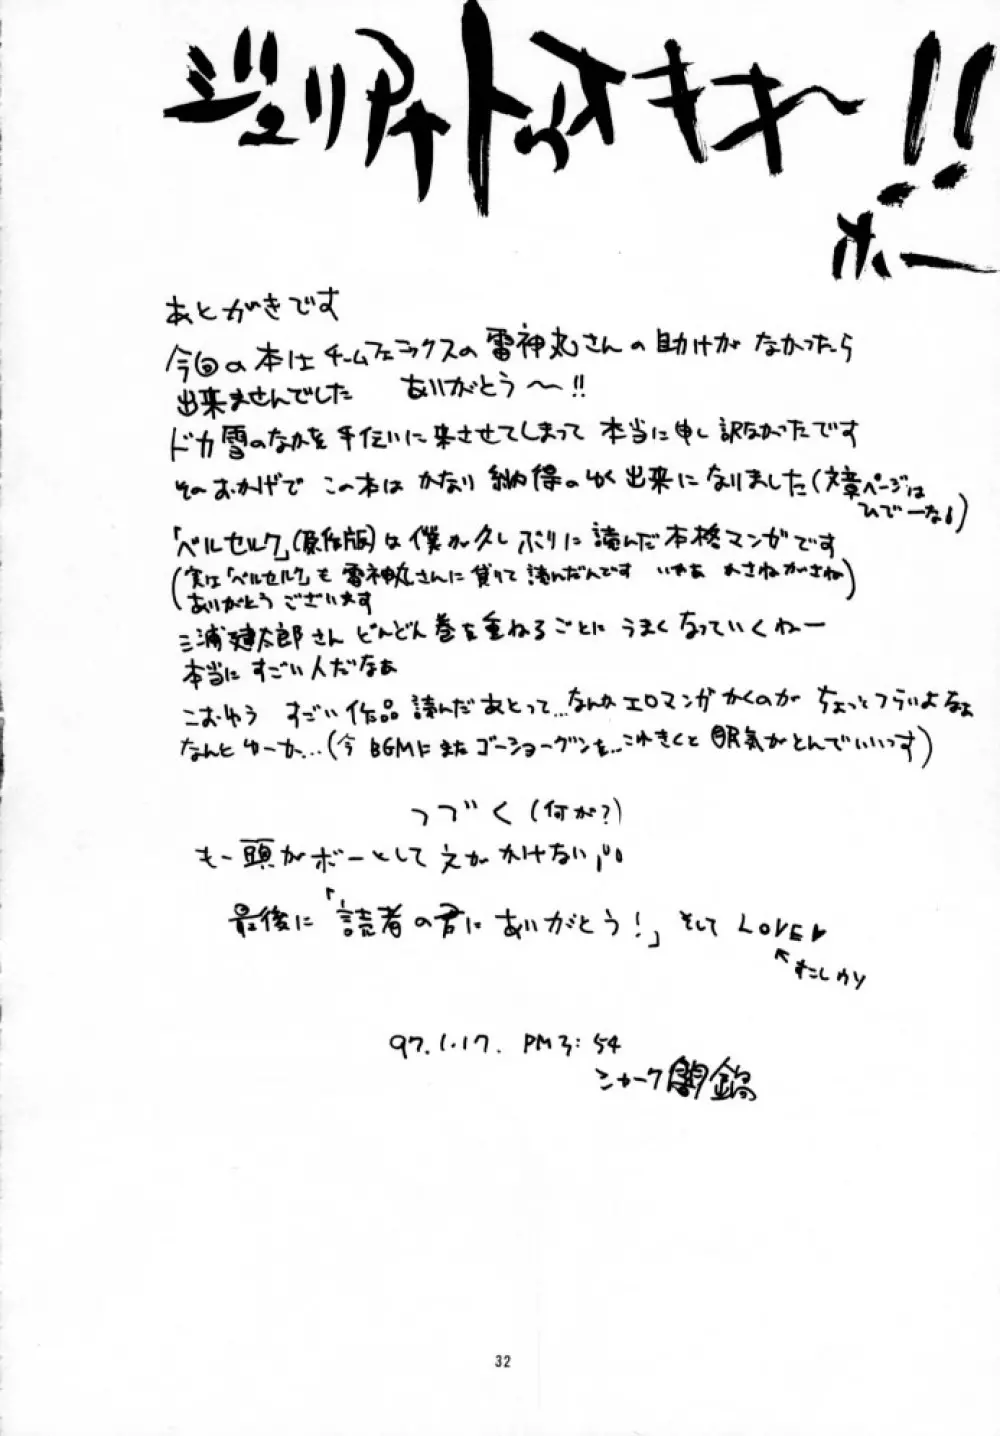 ボー
あとがきです
今回の本はチームフェニックスの雷神丸さんの助けがなかったら
出来ませんでした ありがとう〜!!
ドカ雪のなかを手伝いに来させてしまって 本当に申し訳なかったです
そのおかげで この本は かなり 納得のゆく出来になりました(文章ページは
ひでーな)
「ベルセルク」(原作版)は僕が久しぶりに読んだ本格マンガです
(実は「ベルセルク」も雷神丸さんに貸りて読んだんです いやあ かさねがさね
ありがとうございます)
三浦建太郎さん どんどん巻を重ねるごとに うまくなっていくねー
本当に すごい人だなぁ
こおゆう すごい作品 読んだあとって…なんか エロマンガ かくのが ちょっとつらいよなぁ
なんとゆーか…(今 BGMにまたゴーショーグンを…これきくと 眠気がとんでいいっす)
つづく(何が?)
もー頭がボーとして えが かけない
最後に「読者の君にありがとう!」そして LOVE♥
97.1.17. PM3:54
シャーク闇鍋
32